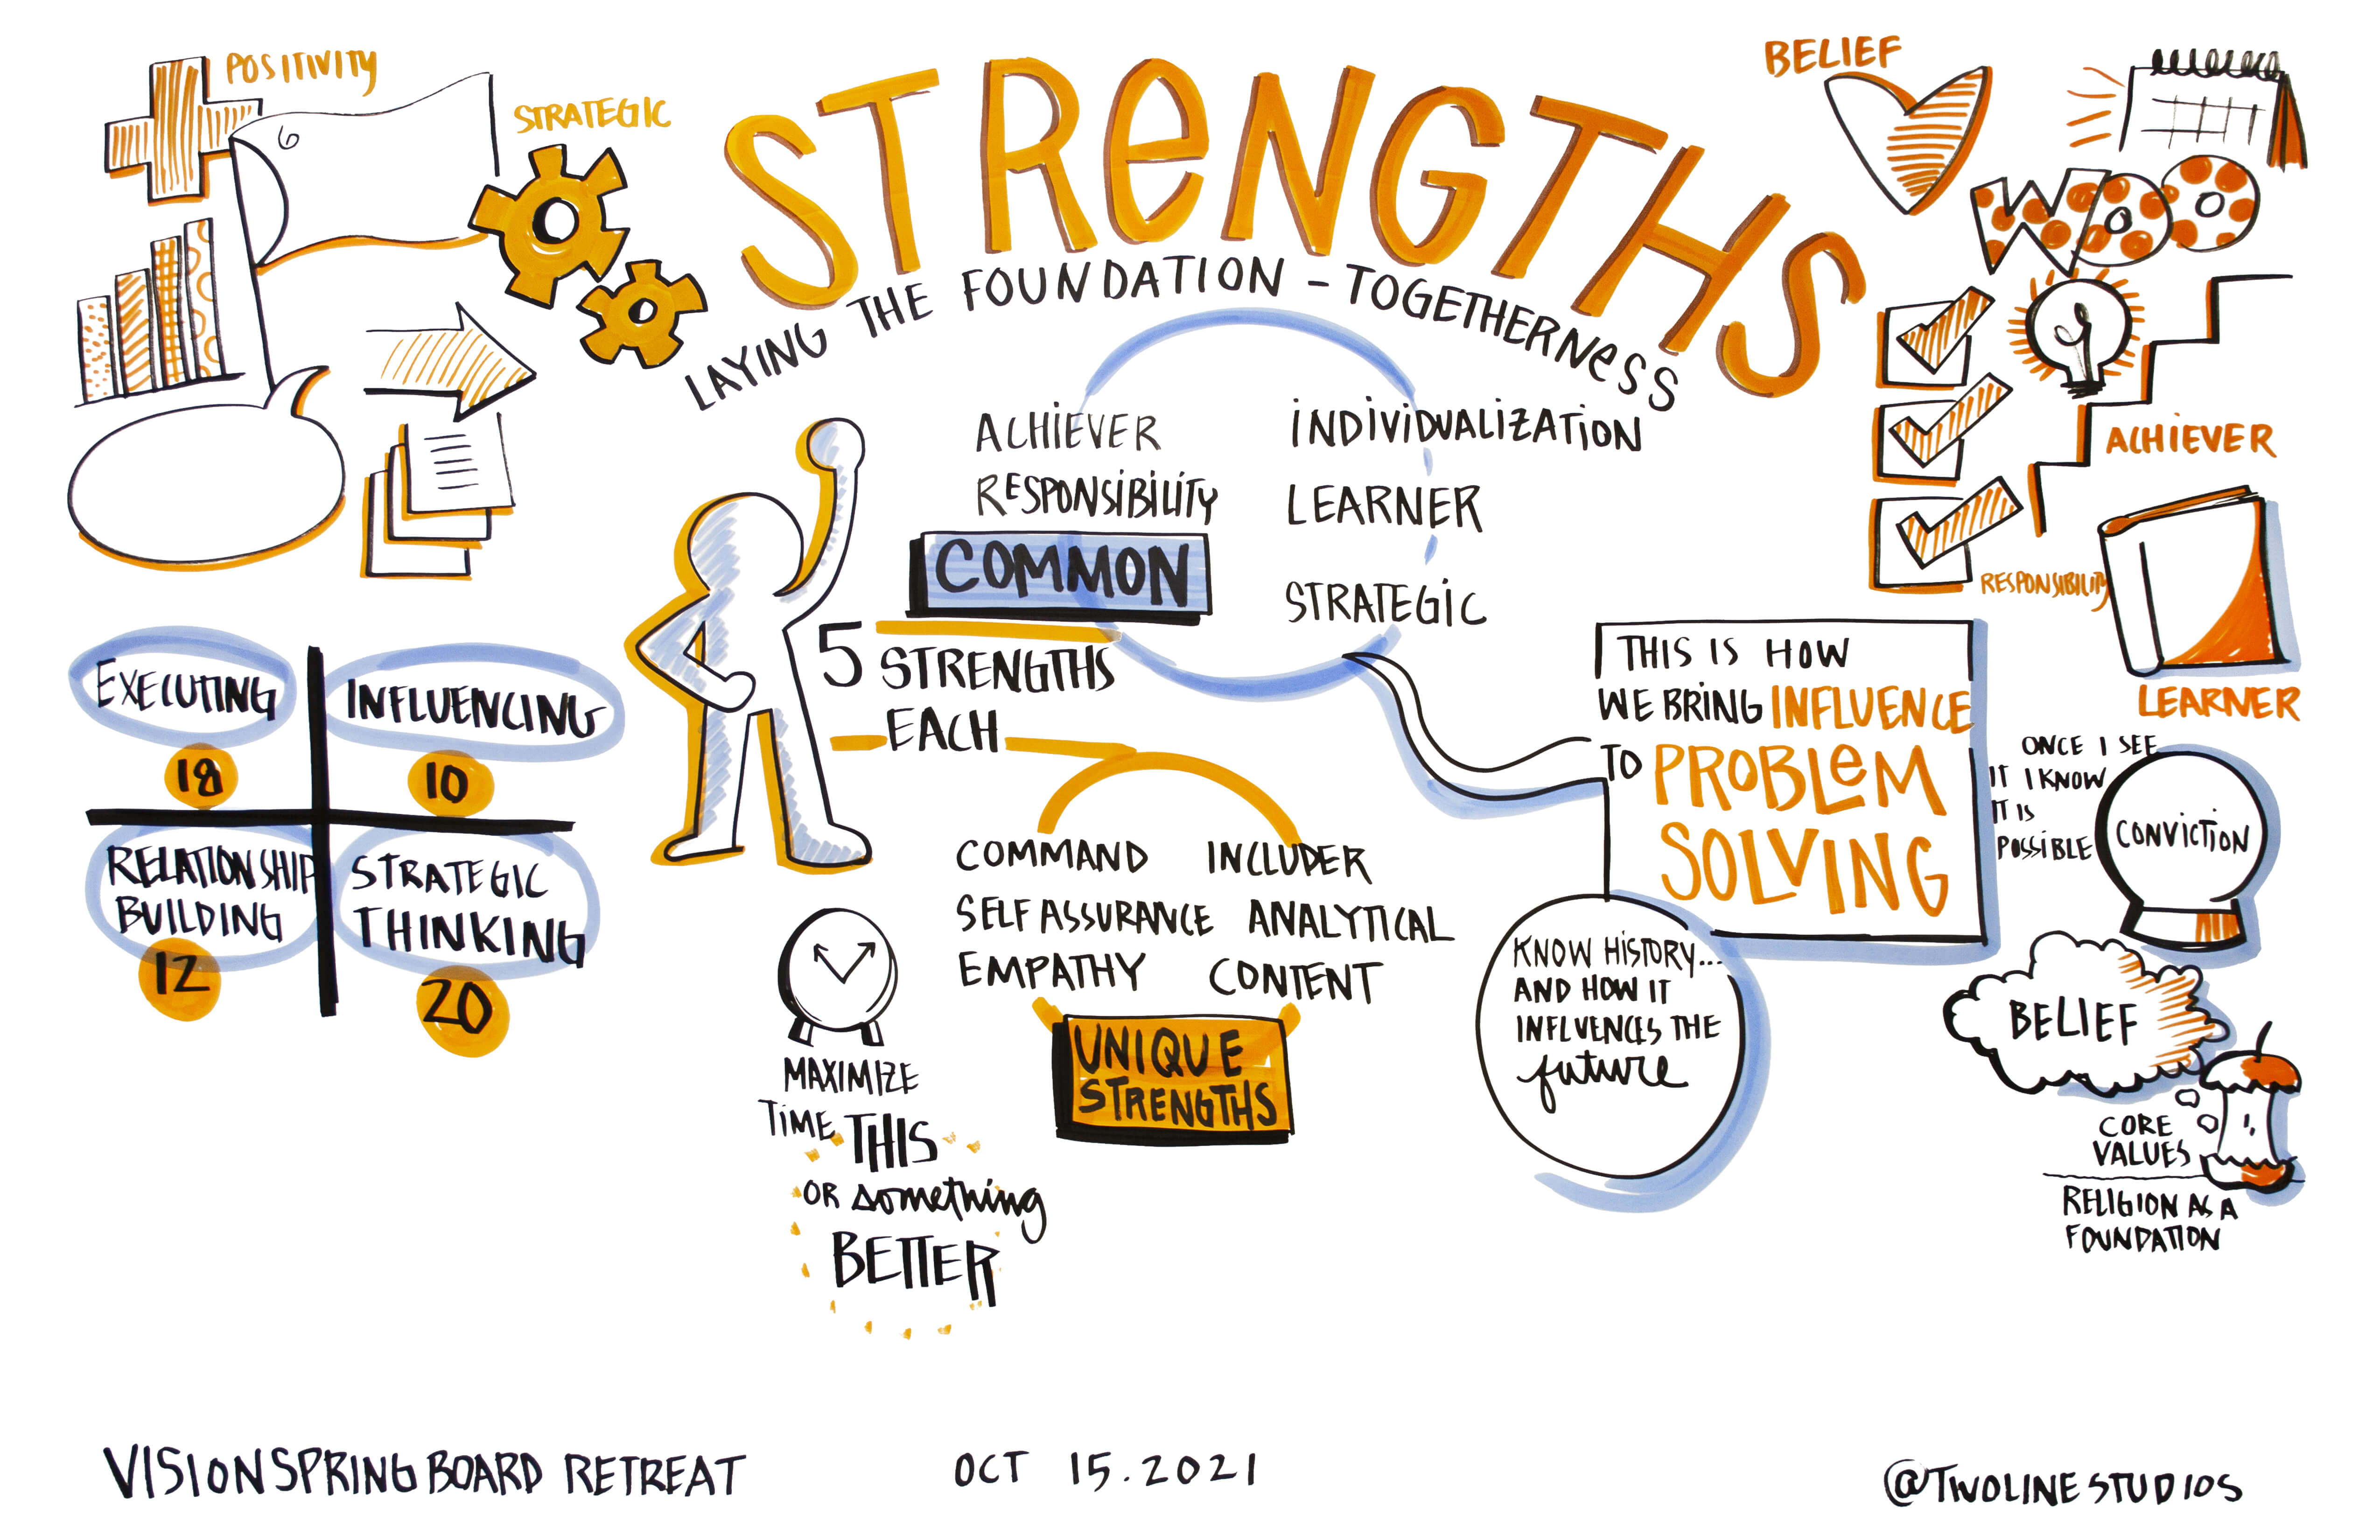 POSITIVITY
STRATEGIC
STRENGTHS
LAYING THE FOUNDATION - TOGETHERNESS
BELIEF
WOO
ACHIEVER
RESPONSIBILITY
LEARNER
ACHIEVER
RESPONSIBILITY
COMMON
INDIVIDUALIZATION
LEARNER
STRATEGIC
5 STRENGTHS
EACH
EXECUTING
18
INFLUENCING
10
RELATIONSHIP
BUILDING
12
STRATEGIC
THINKING
20
COMMAND INCLUDER
SELF ASSURANCE ANALYTICAL
EMPATHY CONTENT
UNIQUE
STRENGTHS
MAXIMIZE
TIME THIS
OR something
BETTER
THIS IS HOW
WE BRING INFLUENCE
TO PROBLEM
SOLVING
KNOW HISTORY...
AND HOW IT
INFLUENCES THE
future
ONCE I SEE
IT I KNOW
IT IS
POSSIBLE
CONVICTION
BELIEF
CORE
VALUES
RELIGION AS A
FOUNDATION
VISIONSPRING BOARD RETREAT
OCT 15.2021
@TWOLINESTUDIOS